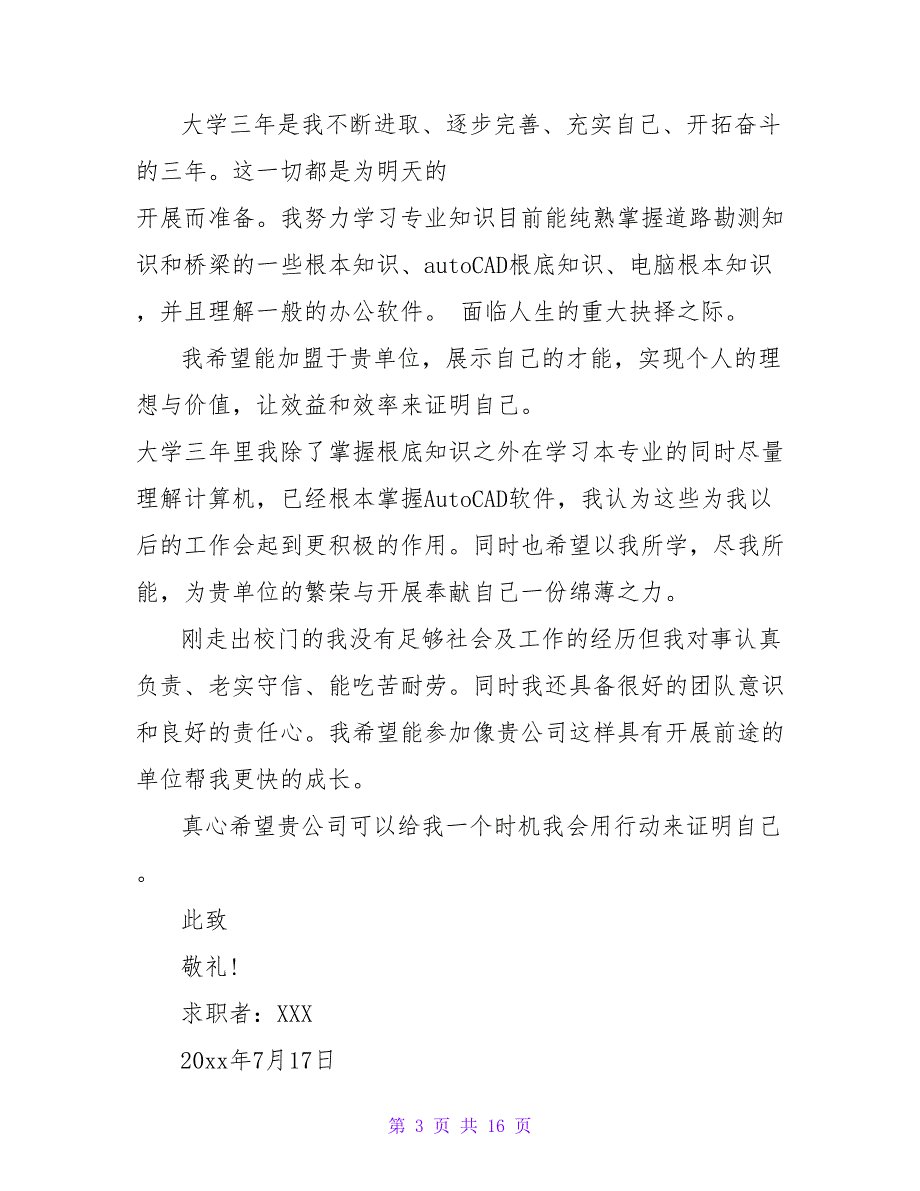 大学三年是我不断进取、逐步完善、充实自己、开拓奋斗
的三年。这一切都是为明天的
开展而准备。我努力学习专业知识目前能纯熟掌握道路勘测知
识和桥梁的一些根本知识、autoCAD根底知识、电脑根本知识
，并且理解一般的办公软件。 面临人生的重大抉择之际。
我希望能加盟于贵单位，展示自己的才能，实现个人的理
想与价值，让效益和效率来证明自己。
大学三年里我除了掌握根底知识之外在学习本专业的同时尽量
理解计算机，已经根本掌握AutoCAD软件，我认为这些为我以
后的工作会起到更积极的作用。同时也希望以我所学，尽我所
能，为贵单位的繁荣与开展奉献自己一份绵薄之力。
刚走出校门的我没有足够社会及工作的经历但我对事认真
负责、老实守信、能吃苦耐劳。同时我还具备很好的团队意识
和良好的责任心。我希望能参加像贵公司这样具有开展前途的
单位帮我更快的成长。
真心希望贵公司可以给我一个时机我会用行动来证明自己
。
此致
敬礼!
求职者：XXX
20xx年7月17日
第 3 页 共 16 页